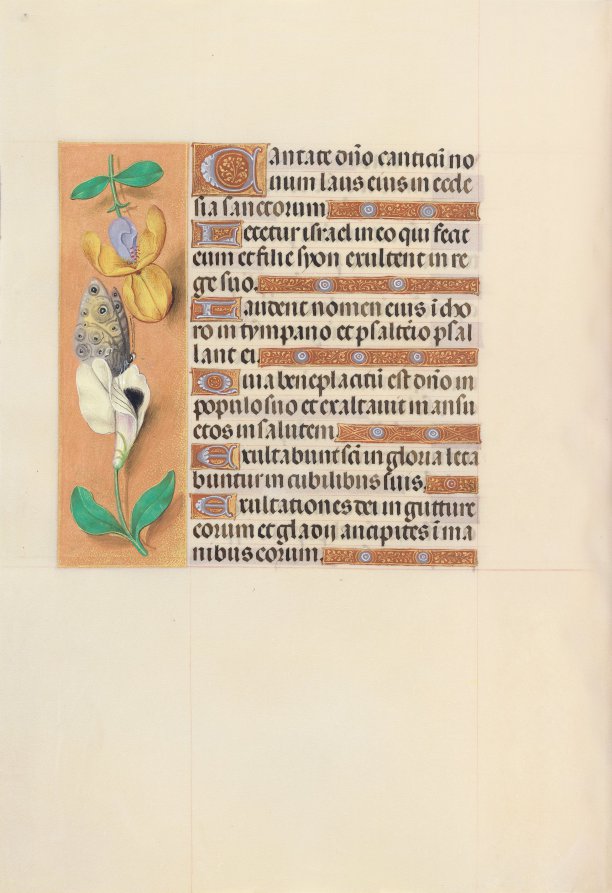 Cantate dño canticũ no
uum laus eius in eccle
sia sanctorum
Letetur israel in eo qui fecit
eum et filie syon exultent in re
ge suo.
Laudent nomen eius ĩ cho
ro in tympano et psalterio psal
lant ei.
Quia beneplacitũ est dño in
populo suo et exaltauit mansu
etos in salutem
Exultabunt sci in gloria leta
buntur in cubilibus suis.
Exultationes dei in gutture
eorum et gladij ancipites ĩ ma
nibus eorum.